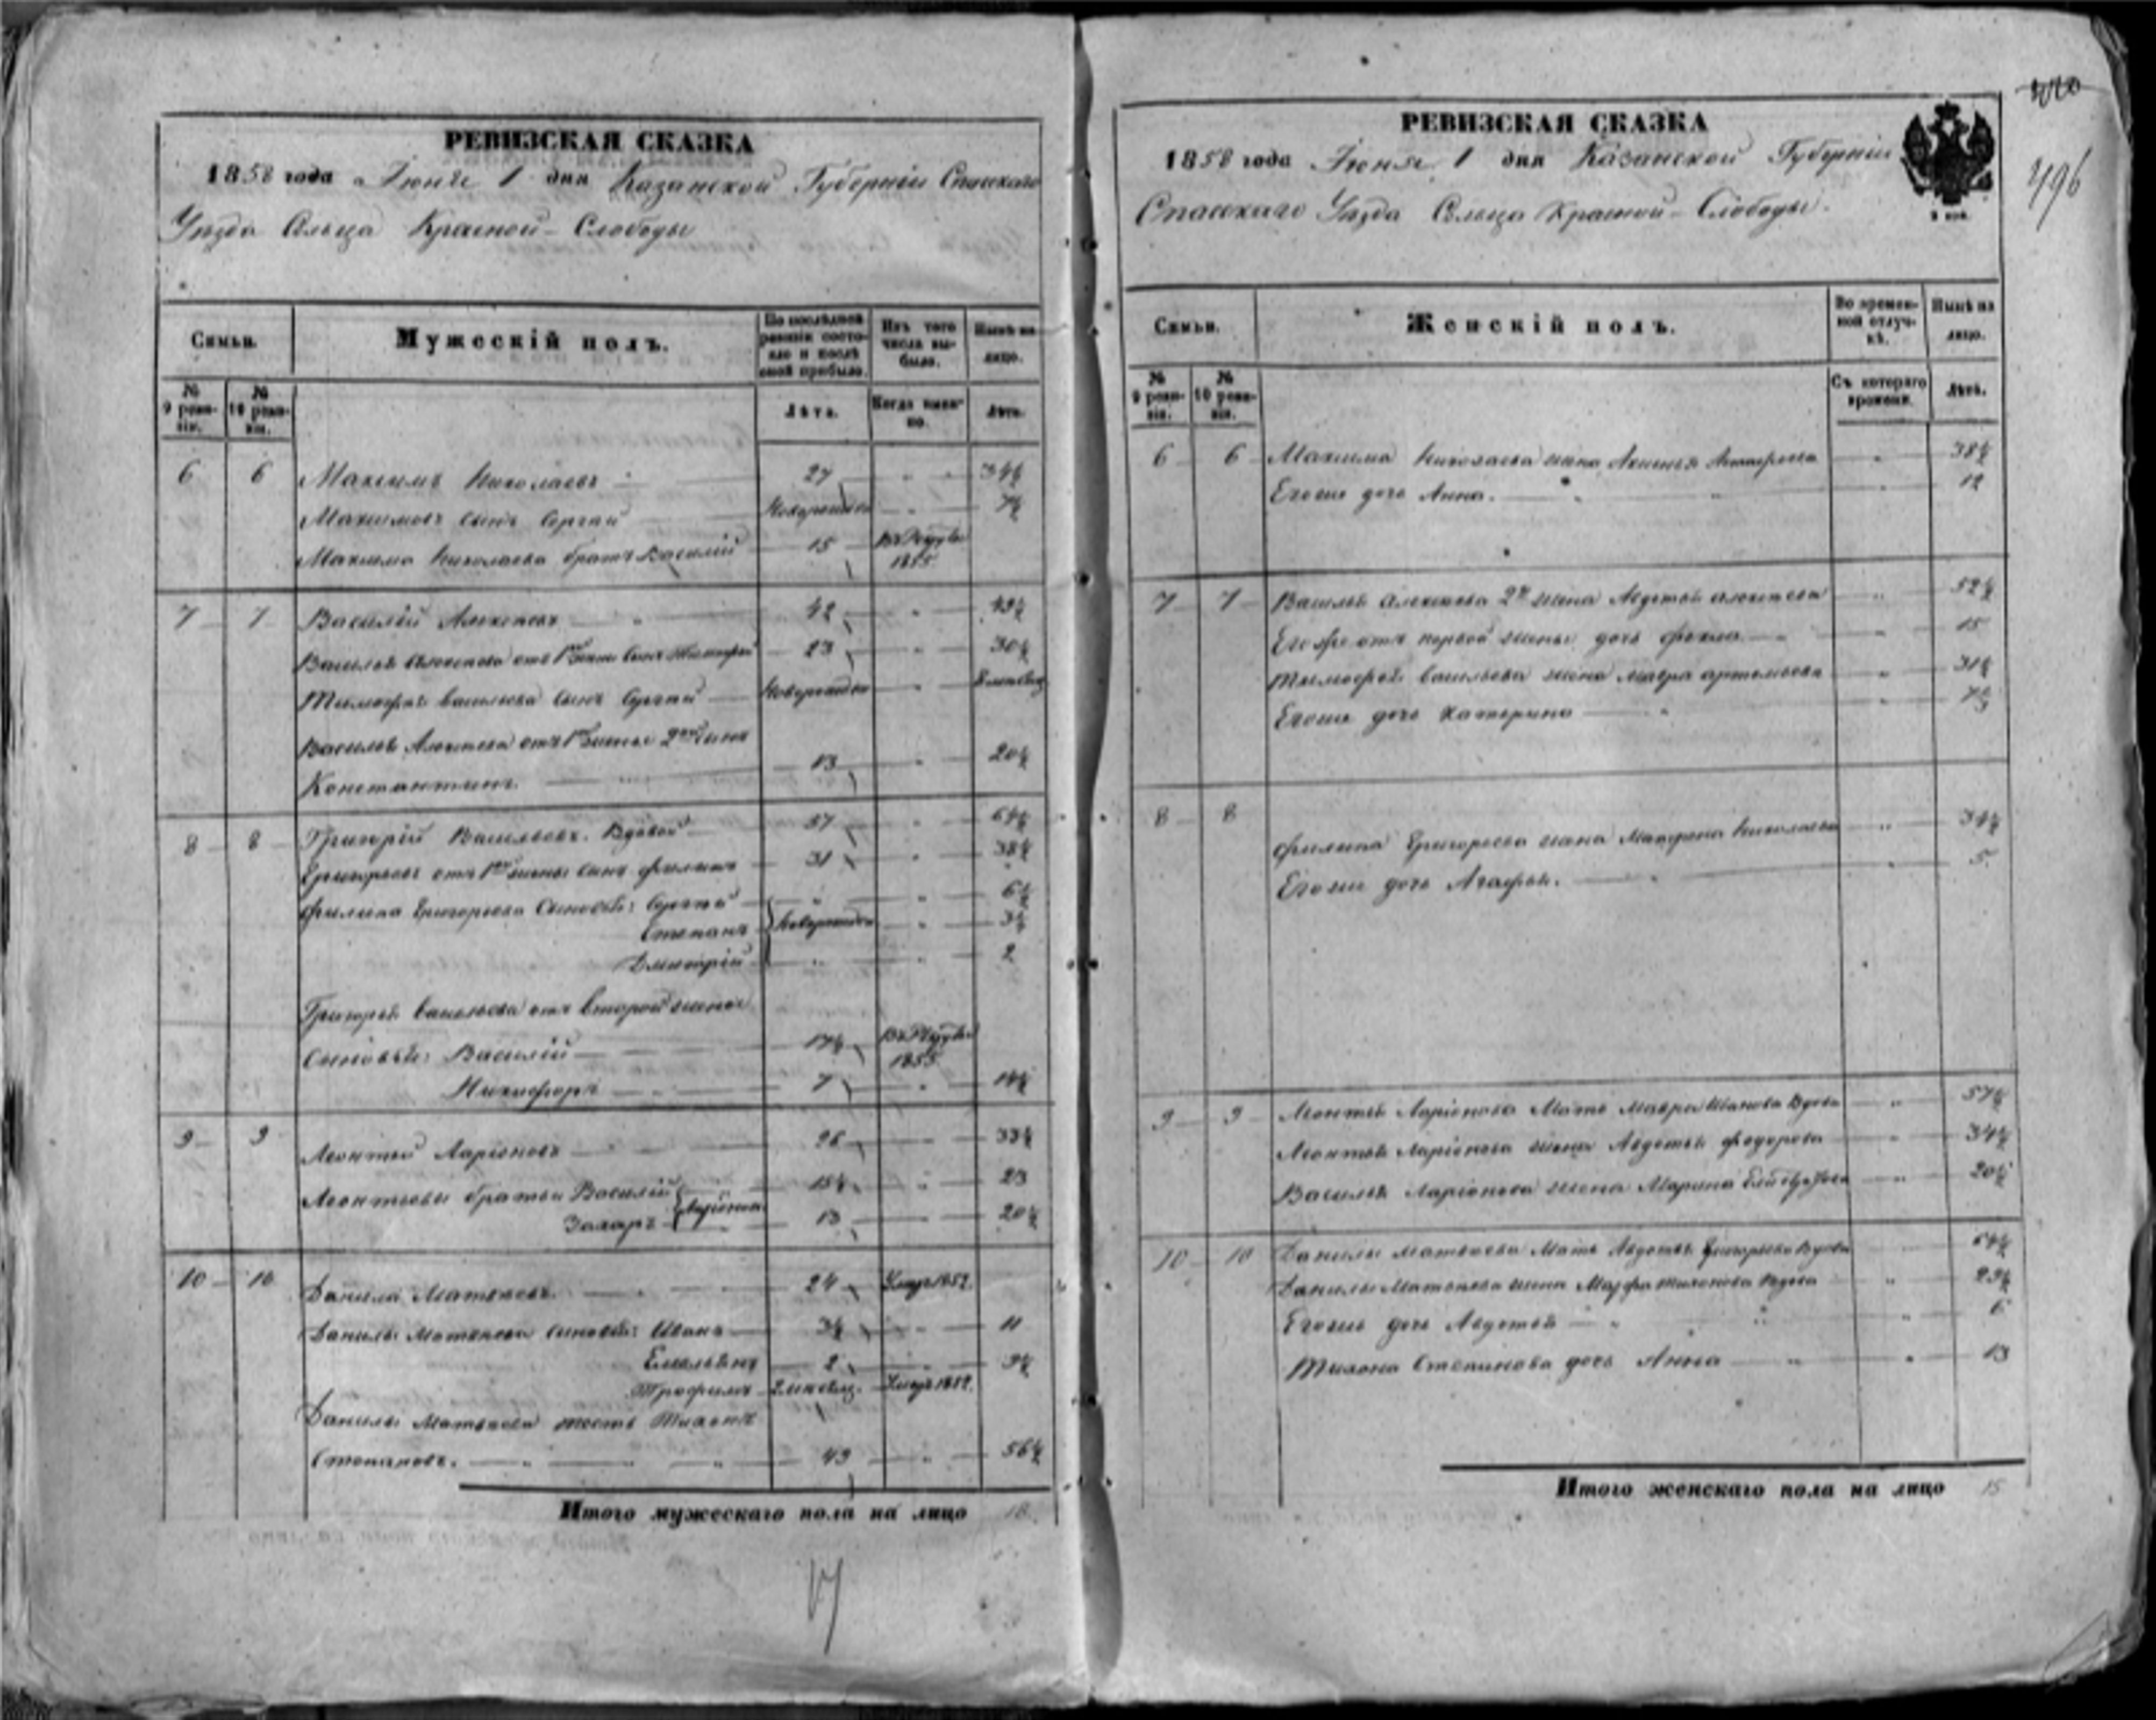 РЕВИЗСКАЯ СКАЗКА
1858 года Іюня 1 дня Казанской Губерніи Спасскаго
Уѣзда Сельца Красной-Слободы
Семьи.
Мужескій полъ.
По послѣдней ревизіи состояло и послѣ оной прибыло.
Изъ того числа выбыло.
Нынѣ на лицо.
№ 9 ревизіи.
№ 10 ревизіи.
Лѣта.
Когда именно.
Лѣта.
6 6 Максимъ Николаевъ 27 34½
Максимовъ сынъ Сергѣй Новорожден 7½
Максима Николаева братъ Василій 15 1855
7 7 Василій Алексѣевъ 42 49½
Василья Алексѣева отъ 1й жены сынъ Тимофей 23 30½
Тимофея Васильева сынъ Сергѣй Новорожден
Василья Алексѣева отъ 1й жены 2й сынъ
Константинъ. 13 20½
8 8 Григорій Васильевъ. Вдовой 57 64½
Григорьевъ отъ 1й жены сынъ Филипъ 31 38½
Филипа Григорьева Сыновья: Сергѣй 6½
Степанъ Новорожден 3½
Дмитрій 2
Григорья Васильева отъ второй жены
Сыновья: Василій 17½ 1855
Никифоръ 7 14½
9 9 Леонтій Ларіоновъ 26 33½
Леонтьевы братья Василій 15½ 23
Захаръ Ларіонова 13 20½
10 10 Данила Матвѣевъ 24
Данилы Матвѣева сыновья: Иванъ 3½ 11
Емельянъ 2 9½
Трофимъ
Данилы Матвѣева тесть Тихонъ
Степановъ. 49 56½
Итого мужескаго пола на лицо 18
17
РЕВИЗСКАЯ СКАЗКА
1858 года Іюня 1 дня Казанской Губерніи
Спасскаго Уѣзда Сельца Красной-Слободы.
496
Семьи.
Женскій полъ.
Во временной отлучкѣ.
Нынѣ на лицо.
№ 9 ревизіи.
№ 10 ревизіи.
Съ котораго времени.
Лѣта.
6 6 Максима Николаева жена Аксинья 38½
Егоже дочь Анна. 12
7 7 Василья Алексѣева 2я жена Авдотья Алексѣева 52½
Егоже отъ первой жены дочь Фекла 15
Тимофея Васильева жена Мавра Артемьева 31½
Егоже дочь Катерина
8 8 Филипа Григорьева жена Матрена Николаева 34½
Егоже дочь Агафья. 5
9 9 Леонтья Ларіонова Мать Мавра Иванова Вдова 57½
Леонтья Ларіонова жена Авдотья Федорова 34½
Василья Ларіонова жена Марина 20½
10 10 Данилы Матвѣева Мать Авдотья Григорьева Вдова 64½
Данилы Матвѣева жена Марфа Тихонова Вдова 29½
Егоже дочь Авдотья 6
Тихона Степанова дочь Анна 13
Итого женскаго пола на лицо 15